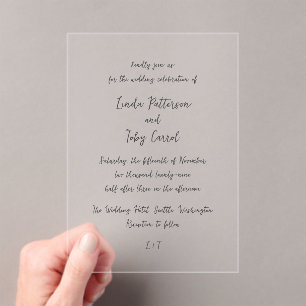 Kindly join us
for the wedding celebration of
Linda Patterson
and
Toby Carrol
Saturday the fifteenth of November
two thousand twenty-nine
half after three in the afternoon
The Wedding Hotel, Seattle, Washington
Reception to follow
L | T